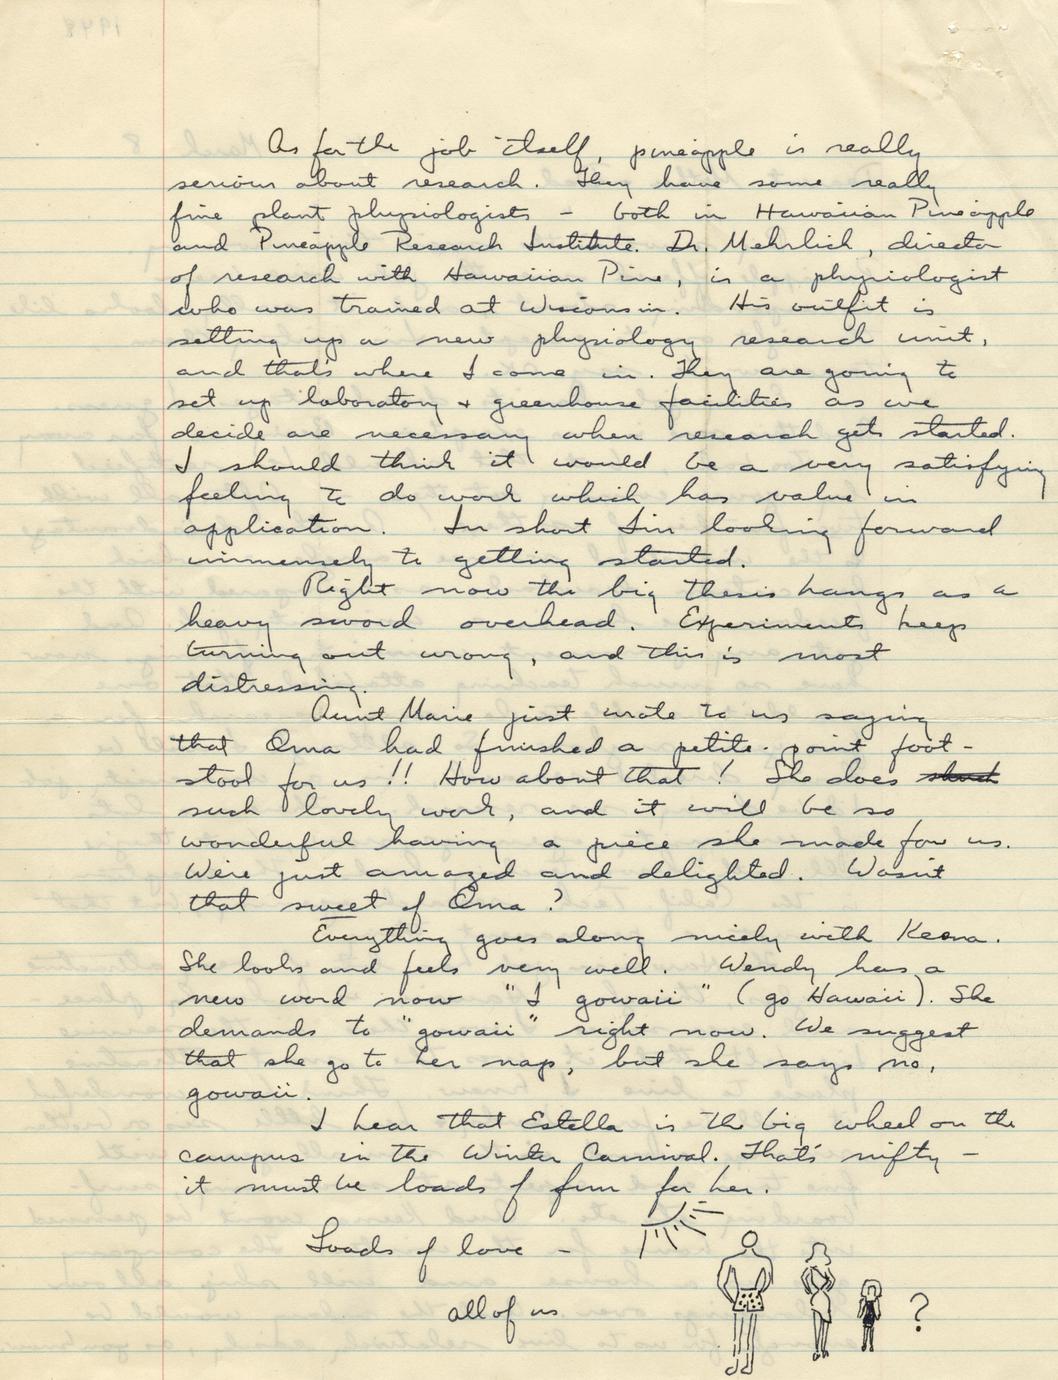 As for the job itself, pineapple is really
serious about research. They have some really
fine plant physiologists - both in Hawaiian Pineapple
and Pineapple Research Institute. Dr. Mehrlich, director
of research with Hawaiian Pine, is a physiologist
who was trained at Wisconsin. His outfit is
setting up a new physiology research unit,
and that's where I come in. They are going to
set up laboratory + greenhouse facilities as we
decide are necessary when research gets started.
I should think it would be a very satisfying
feeling to do work which has value in
application. In short I'm looking forward
immensely to getting started.
Right now the big thesis hangs as a
heavy sword overhead. Experiments keep
turning out wrong, and this is most
distressing.
Aunt Marie just wrote to us saying
that Oma had finished a petite-point foot-
stool for us!! How about that! She does
such lovely work, and it will be so
wonderful having a piece she made for us.
We're just amazed and delighted. Wasn't
that sweet of Oma?
Everything goes along nicely with Keona.
She looks and feels very well. Wendy has a
new word now "I gowaii" (go Hawaii). She
demands to "gowaii" right now. We suggest
that she go to her nap, but she says no,
gowaii.
I hear that Estella is the big wheel on the
campus in the Winter Carnival. That's nifty -
it must be loads of fun for her.
Loads of love -
all of us
?